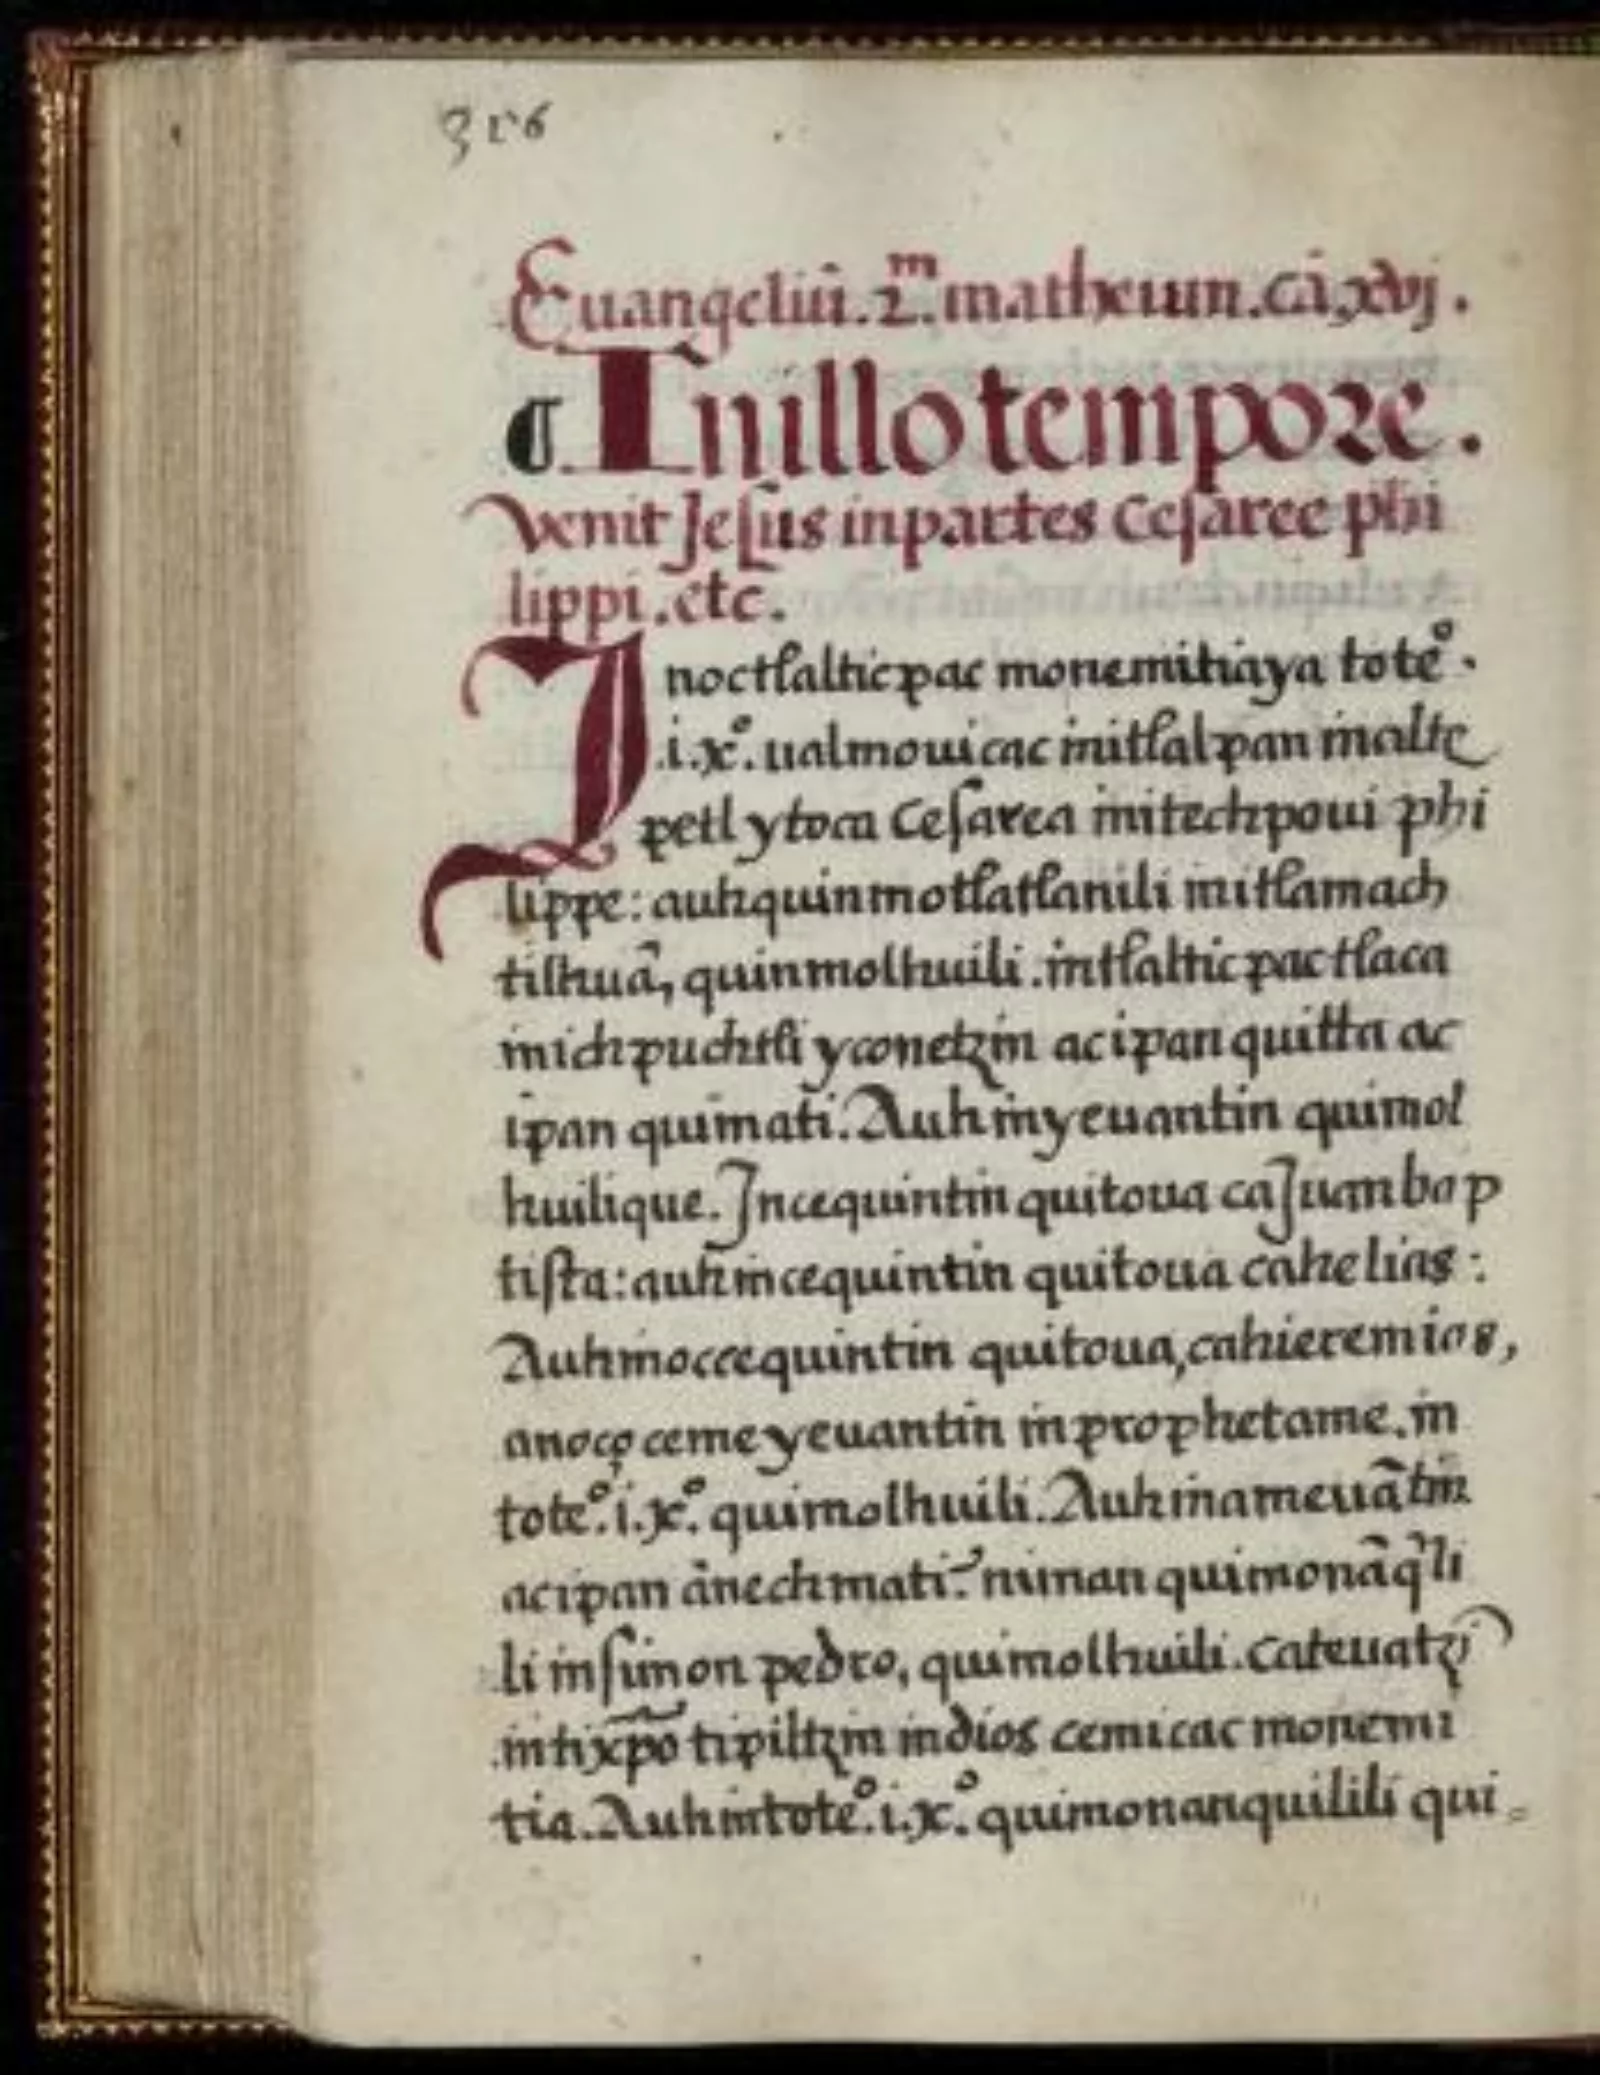 356
Euangeliū.2.m matheum.cā,xvj.
¶ Inillo tempore.
venit Jesus inpartes cesaree phi
lippi.etc.
Inoctlalticpac monemitiaya toteo.
.i.xo. ualmouicac initlalpan inalte
petl ytoca Cesarea initechpoui phi
lippe: auhquinmotlatlanili initlamach
tilhuā, quinmolhuili.intlalticpactlaca
inichpuchtli yconetzin acipanquitta ac
ipan quimati. Auhinyeuantin quimol
huilique. Incequintin quitoua caJuanbap
tista: auhincequintin quitoua cahelias:
Auhinoccequintin quitoua, cahieremias,
anoço ceme yeuantin inprophetame. in
toteo. i.xo. quimolhuili. Auhinameuātin
acipan ānechmati? niman quimonāq̄li
li insimon pedro, quimolhuili. cateuatzī
intixp̄o tipiltzin indios cemicac monemi
tia. Auhintoteo. i.xo. quimonanquilili qui=